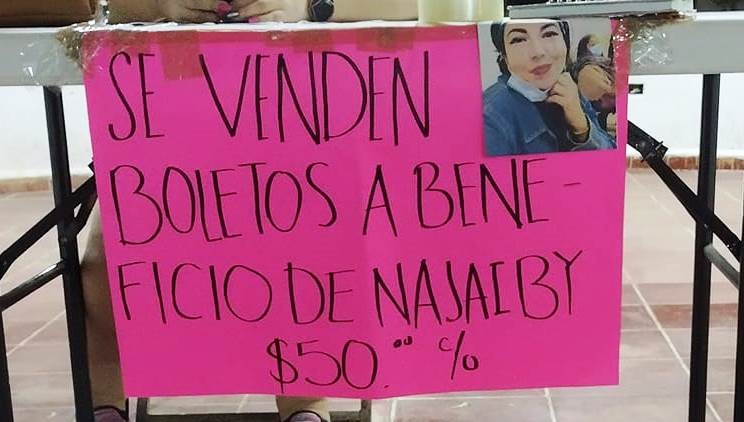 SE VENDEN
BOLETOS A BENE-
FICIO DE NAJAIBY
$50.00 c/o